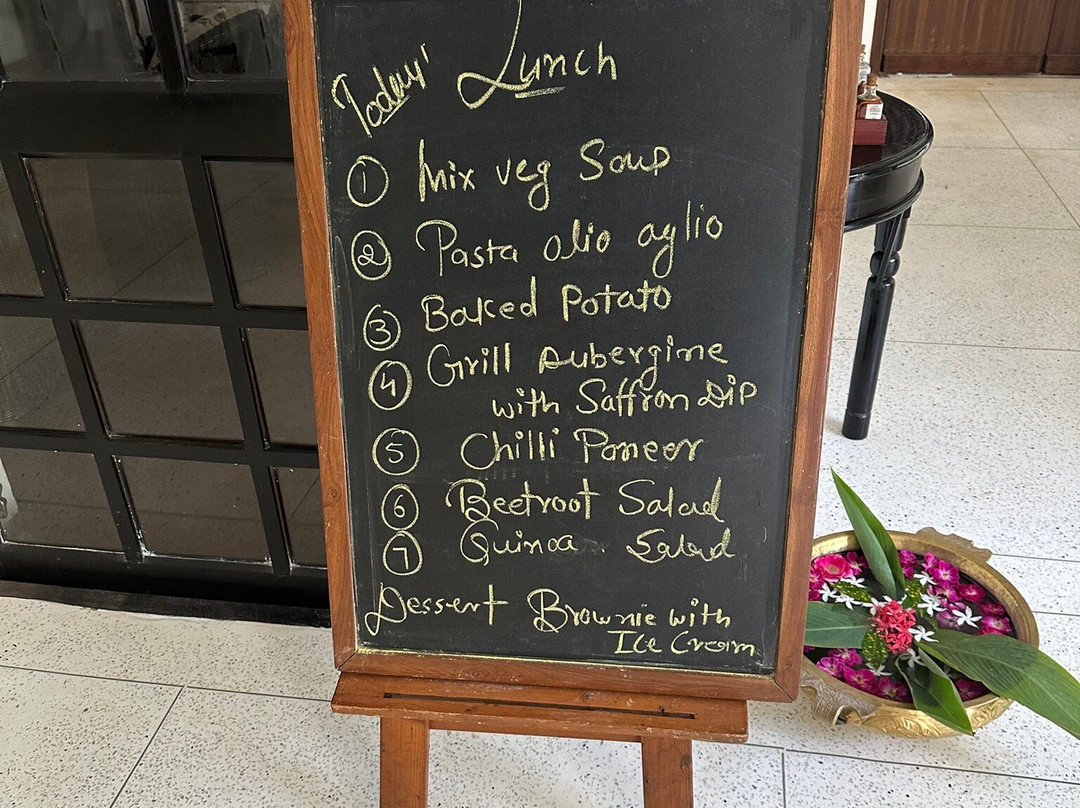 Today' Lunch
1 Mix veg Soup
2 Pasta olio aglio
3 Baked Potato
4 Grill Aubergine
with Saffron Dip
5 Chilli Paneer
6 Beetroot Salad
7 Quinoa . Salad
Dessert Brownie with
Ice Cream